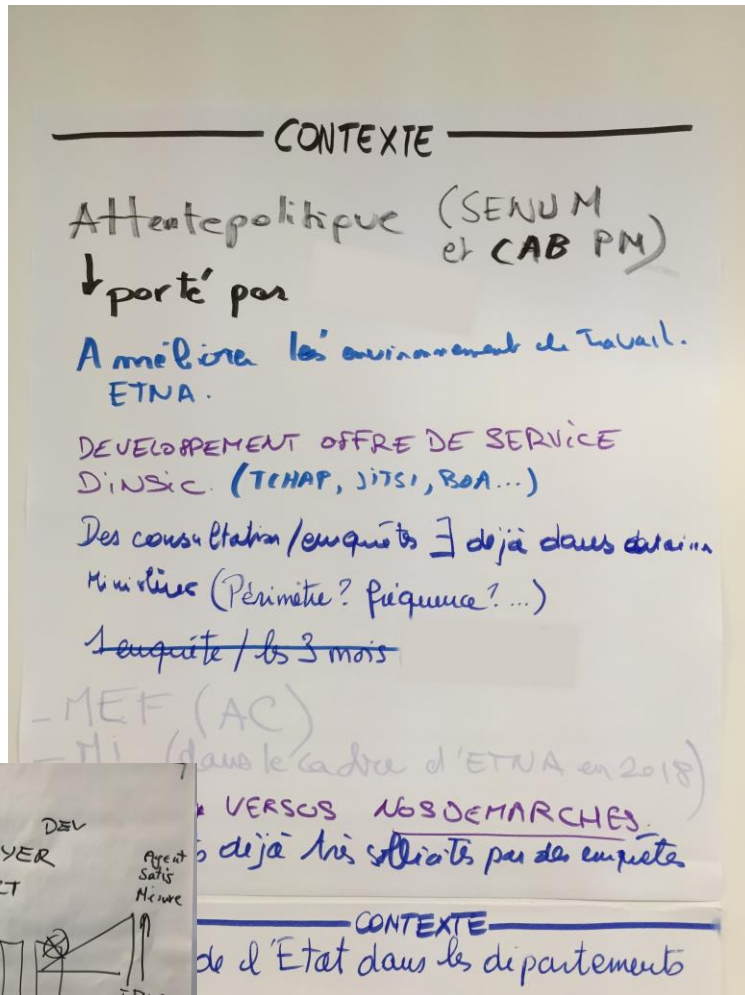 CONTEXTE
Attente politique (SENUM
et CAB PM)
↓ porté par
Améliorer les environnement de Travail.
ETNA.
DEVELOPPEMENT OFFRE DE SERVICE
DINSIC. (TCHAP, JITSI, BOA...)
Des consultation/enquêtes ∃ déjà dans certains
Ministères (Périmètre? fréquence? ...)
1 enquête / les 3 mois
- MEF (AC)
- MI (dans le cadre d'ETNA en 2018)
VERSUS NOS DEMARCHES.
déjà très sollicités par des enquêtes
CONTEXTE
de l'Etat dans les départements
7
DEV
YER
Agent
Satis
Mesure